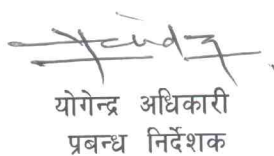 योगेन्द्र अधिकारी
प्रबन्ध निर्देशक